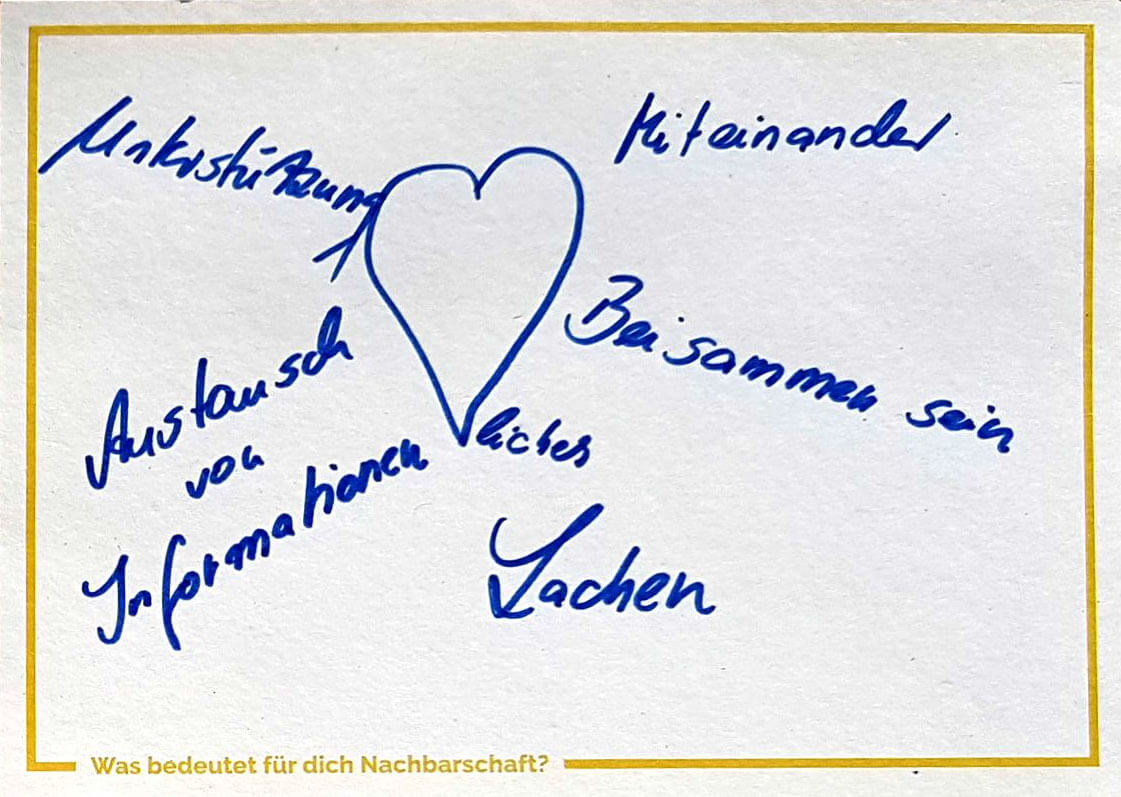 Unterstützung
Miteinander
Austausch
von
Informationen
Beisammen sein
liches
Lachen
Was bedeutet für dich Nachbarschaft?